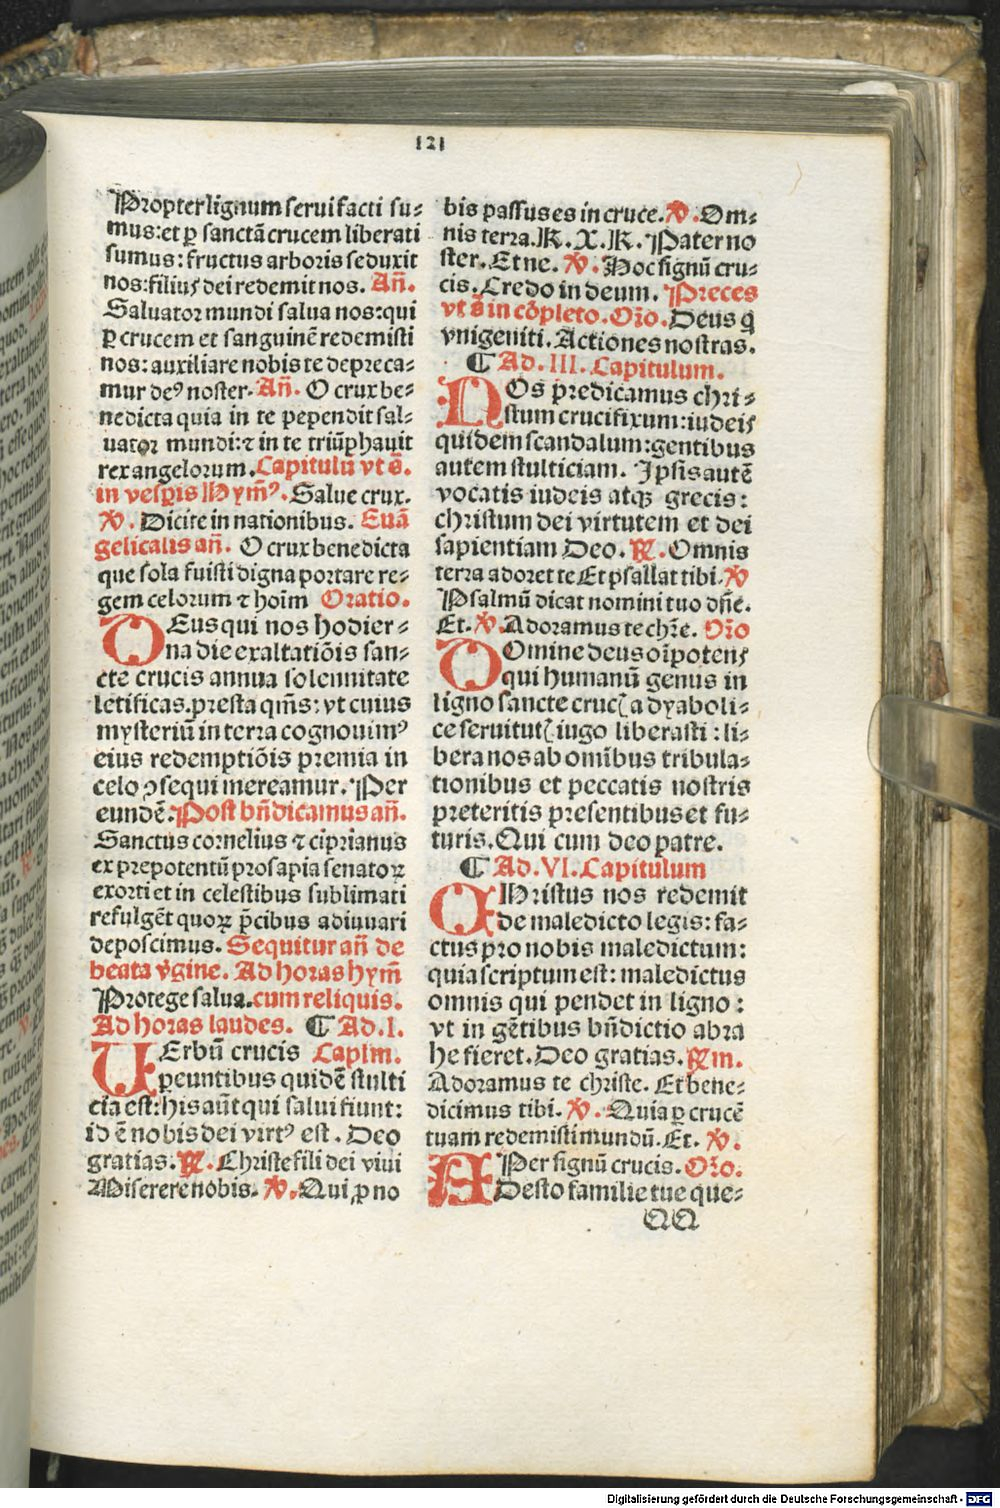 121
Propter lignum serui facti su⸗
mus:et ꝑ sanctã crucem liberati
sumus: fructus arboris seduxit
nos:filius dei redemit nos. Añ.
Saluator mundi salua nos:qui
ꝑ crucem et sanguinẽ redemisti
nos: auxiliare nobis te depreca⸗
mur deꝰ noster. Añ. O crux be⸗
nedicta quia in te pependit sal⸗
uator mundi: ⁊ in te triũphauit
rex angelorum. Capitulũ vt s̃.
in vesꝑis Hym̃ꝰ. Salue crux.
℣. Dicite in nationibus. Euã
gelicalis añ. O crux benedicta
que sola fuisti digna portare re⸗
gem celorum ⁊ hoĩm Oratio.
DEus qui nos hodier⸗
na die exaltatiõis san⸗
cte crucis annua solennitate
letificas.presta qm̃s: vt cuius
mysteriũ in terra cognouimꝰ
eius redemptiõis premia in
celo ꝯsequi mereamur. Per
eundẽ. Post bñdicamus añ.
Sanctus cornelius ⁊ ciprianus
ex prepotentũ prosapia senatoꝝ
exorti et in celestibus sublimati
refulgẽt quoꝝ p̃cibus adiuuari
deposcimus. Sequitur añ de
beata v̓gine. Ad horas hym̃
Protege salua. cum reliquis.
Ad horas laudes. ¶ Ad .I.
VErbũ crucis Caplm.
pereuntibus quidẽ stulti
cia est: his aũt qui salui fiunt:
id ẽ nobis dei virtꝰ est. Deo
gratias. ℟. Christe fili dei viui
Miserere nobis. ℣. Qui ꝓ no
bis passus es in cruce. ℣. Om⸗
nis terra. K. X. K. Pater no
ster. Et ne. ℣. Hoc signũ cru⸗
cis. Credo in deum. Preces
vt s̃ in cõpleto. Or̃o. Deus q̃
vnigeniti. Actiones nostras.
¶ Ad .III. Capitulum.
NOs predicamus chri⸗
stum crucifixum:iudeis
quidem scandalum:gentibus
autem stulticiam. Ipsis autẽ
vocatis iudeis atqꝫ grecis:
christum dei virtutem et dei
sapientiam Deo. ℟. Omnis
terra adoret te Et psallat tibi. ℣
Psalmũ dicat nomini tuo dñe.
Et. ℣. Adoramus te chr̃e. Or̃o
DOmine deus oĩpotens
qui humanũ genus in
ligno sancte crucꝭ a dyaboli⸗
ce seruitutꝭ iugo liberasti : li⸗
bera nos ab omĩbus tribula⸗
tionibus et peccatis nostris
preteritis presentibus et fu⸗
turis. Qui cum deo patre.
¶ Ad .VI. Capitulum
CHristus nos redemit
de maledicto legis: fa⸗
ctus pro nobis maledictum:
quia scriptum est: maledictus
omnis qui pendet in ligno :
vt in gẽtibus bñdictio abra
he fieret. Deo gratias. ℟m.
Adoramus te christe. Et bene⸗
dicimus tibi. ℣. Quia ꝑ crucẽ
tuam redemisti mundũ. Et. ℣.
Per signũ crucis. Or̃o.
ADesto familie tue que⸗
QQ
Digitalisierung gefördert durch die Deutsche Forschungsgemeinschaft - DFG